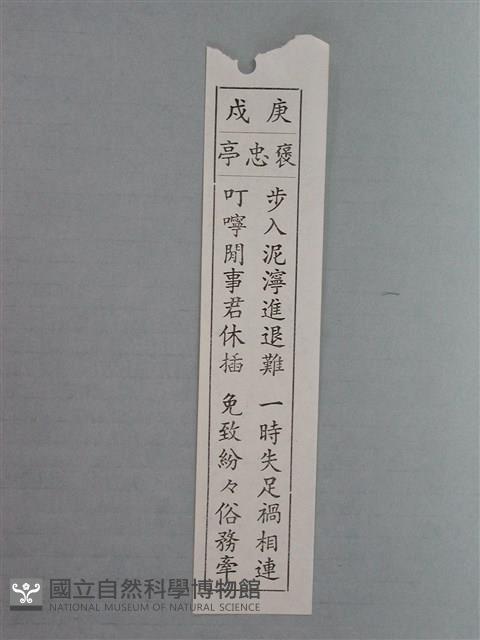 庚戍
褒忠亭
步入泥濘進退難 一時失足禍相連
叮嚀閒事君休插 免致紛々俗務牽
國立自然科學博物館
NATIONAL MUSEUM OF NATURAL SCIENCE